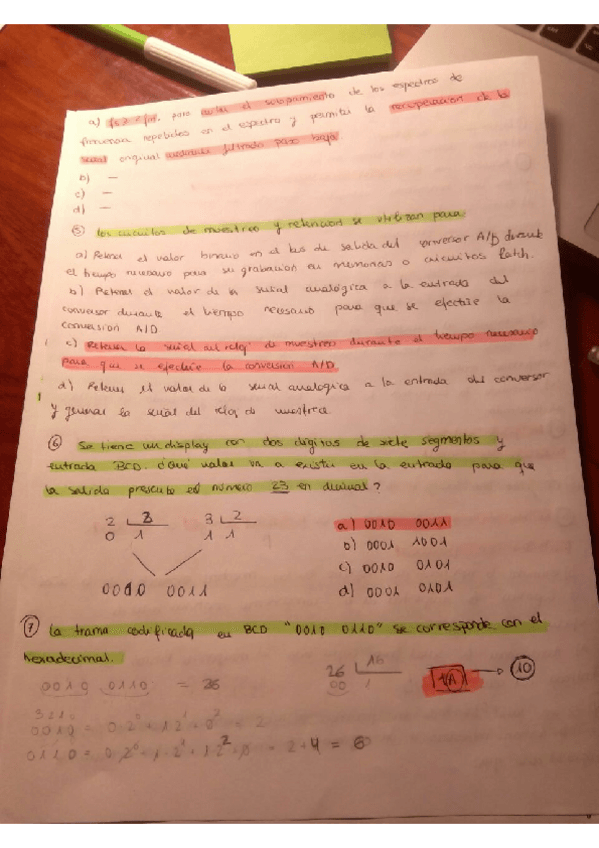 a) fs ≥ para evitar el solapamiento de los espectros de
frecuencia repetidos en el espectro y permitir la recuperación de la
señal original mediante filtrado paso baja
b) —
c) —
d) —
⑤ Los circuitos de muestreo y retención se utilizan para
a) Retener el valor binario en el bus de salida del conversor A/D durante
el tiempo necesario para su grabación en memorias o circuitos latch.
b) Retener el valor de la señal analógica a la entrada del
conversor durante el tiempo necesario para que se efectúe la
conversión A/D
c) Retener la señal del reloj de muestreo durante el tiempo necesario
para que se efectúe la conversión A/D
d) Retener el valor de la señal analógica a la entrada del conversor
y generar la señal del reloj de muestra
⑥ Se tiene un display con dos dígitos de siete segmentos y
entrada BCD. ¿Qué valor va a existir en la entrada para que
la salida presente el número 23 en decimal?
2 3 2
0 1 1 1
a) 0010 0011
b) 0001 1001
c) 0010 0101
d) 0001 0101
0010 0011
⑦ La trama codificada en BCD "0010 0110" se corresponde con el
hexadecimal.
0010 0110 = 26
26 16
00 1
1A → 10
3210
0010 = 0·2⁰+1·2¹+0² = 2
0110 = 0·2⁰+1·2¹+1·2²+0 = 2+4 = 6